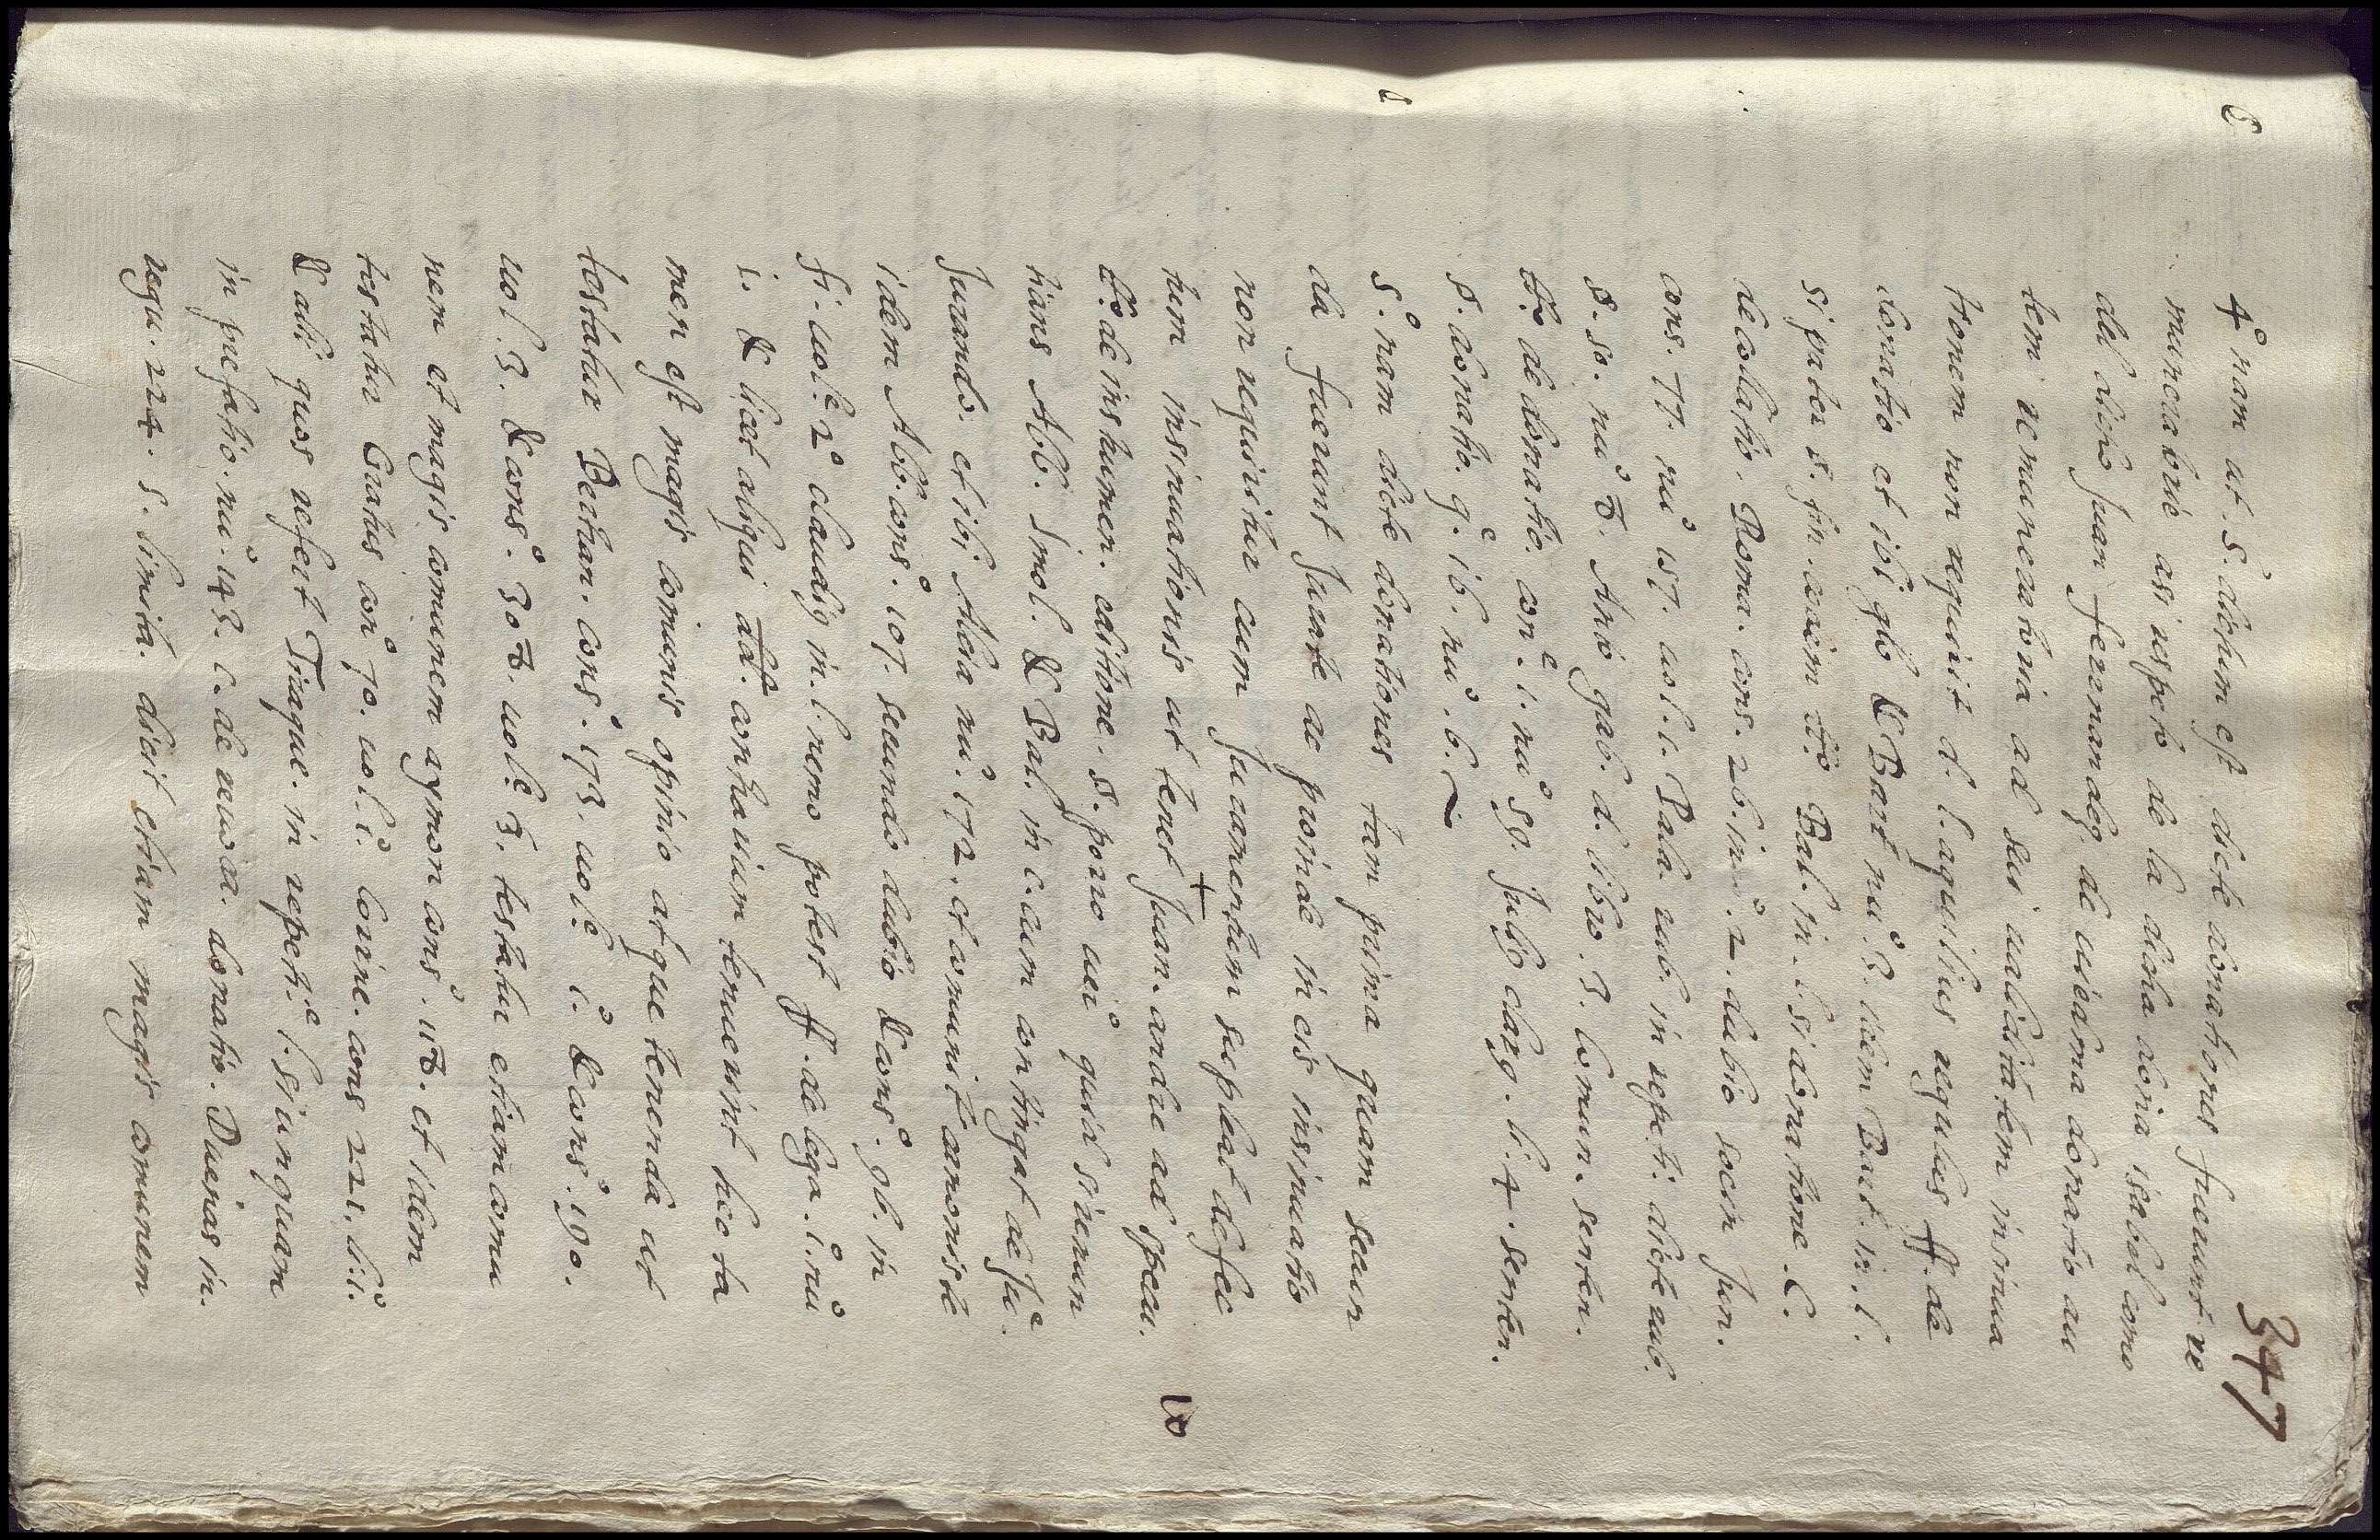 347
4º nam ut. s. dictum est dicte donationes fuerunt re
muneratorie asi respeto de la dicha doña isabel como
del dicho Juan fernandez de uibalma donatio au
tem remuneratoria ad sui ualiditatem insinua
tionem non requirit d. l. aquilius regulus ff. de
donatio et ibi glo & Bart nuº 3. idem Bart. in. l.
si pater §. fin. Bal. in. l. si donatione. C.
de collatio. Roma. cons. 26. in º. 2. dubio socin Jun.
cons. 77. nuº 157. uol. 1. Pala. rub. in repeti. dicte rub.
§. 50. nuº 8. Anto gab. d. libro. 3. comun. senten.
tit. de donatio. con.e 1. nuº 59. Julº claº. li. 4. senten.
§. donatio. q.e 16. nuº. 6.
5º. nam dicte donationes tam prima quam secun
da fuerunt Jurate ac proinde in eis insinuatio
non requiritur cum Juramentum supleat defec
tum insinuationis ut tenet + Juan. andre ad specu.
titº de instrumen. editione. §. porro uerº quid si renun
tians Abb. Imol. & Bal. in c. cum contingat de Ju.e
Jurando. et ibi Aleia nuº. 172. et comunit canoniste
idem Abb. consº. 107. secundo dubio & consº. 96. in
fi. uol.e 2º claudiº in. l. nemo potest ff. de lega. 1º. nuº
1. & licet aliqui contrarium tenuerint hec ta
men est magis comunis opinio atque tenenda ut
testatur Bertran. consº. 173. uol.e 1º. & consº. 190.
uol. 3. & consº. 308. uol.e 3. testatur etiam comu
nem et magis comunem aymon consº. 118. et idem
testatur Gratus conº 70. uol. 1º. Corne. cons 221. li. 1º.
& alii quos refert Tiraque. in repeti.e l. si unquam
in prefatio. nuº. 143. C. de reuoca. donatio. Dueñas in.
regu. 224. 5. limita. dicit etiam magis comunem